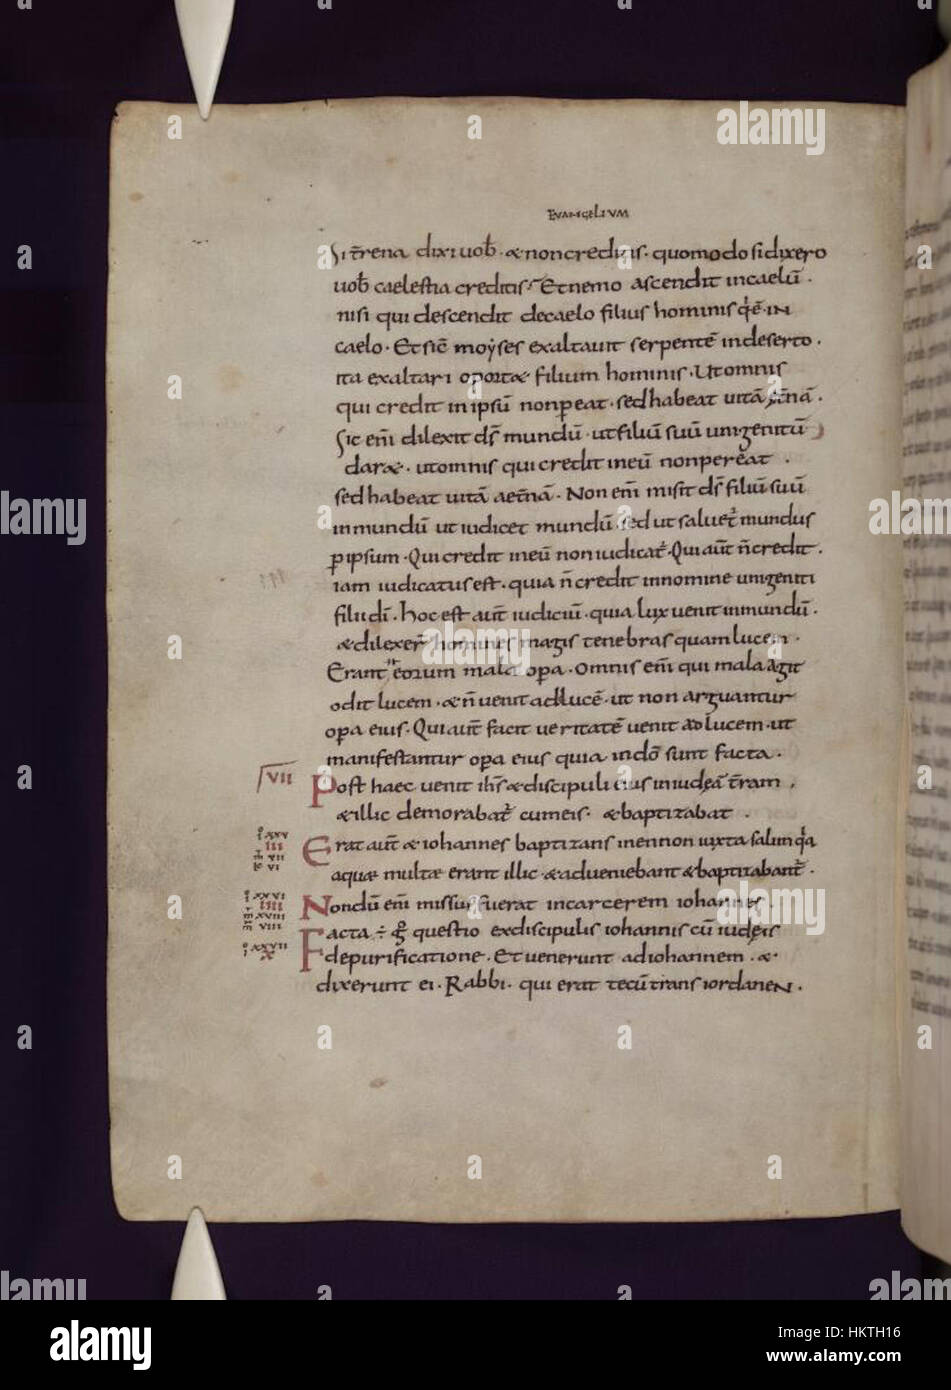 EVANGELIUM
Si t̄rena dixi uob̄ · & non creditis · quomodo si dixero
uob̄ caelestia creditis · Et nemo ascendit in caelū ·
nisi qui descendit de caelo filius hominis q' ē · IN
caelo · Et sic̄ moyses exaltauit serpentē in deserto ·
ita exaltari oport& filium hominis · Ut omnis
qui credit in ipsū non pereat · sed habeat uitā
Sic eni dilexit ds̄ mundū · ut filiū suū unigenitū
dar& · ut omnis qui credit in eū non pereat ·
sed habeat uitā aet̄nā · Non eni misit ds̄ filiū suū
in mundū ut iudicet mundū · sed ut saluet' mundus
p ipsum · Qui credit in eū non iudicat' · Qui aut̄ n̄ credit ·
iam iudicatus est · quia n̄ credit in nomine unigeniti
filii dī · hoc est aut̄ iudiciū · quia lux uenit in mundū ·
& dilexer̄ homines magis tenebras quam lucem ·
Erant eorum mala opa · Omnis eni qui mala agit
odit lucem · & n̄ uenit ad lucē · ut non arguantur
opa eius · Qui aut̄ facit ueritatē uenit ad lucem · ut
manifestantur opa eius quia in dō sunt facta ·
VII
Post haec uenit ihs̄ & discipuli eius in iudeā t̄ram ,
& illic demorabat' cum eis · & baptizabat ·
XXV
III
VII
VI
Erat aut̄ & iohannes baptizans in ennon iuxta salim q'a
aquae multae erant illic · & adueniebant & baptizabant' ·
XXVI
IIII
XVIII
VIII
Nondū eni missus fuerat in carcerem iohannes ·
XXVII
X
Facta ÷ g° questio ex discipulis iohannis cū iudeis
de purificatione · Et uenerunt ad iohannem · &
dixerunt ei · Rabbi · qui erat tecū trans iordaneN ·
alamy
a
alamy
Image ID: HKTH16
www.alamy.com